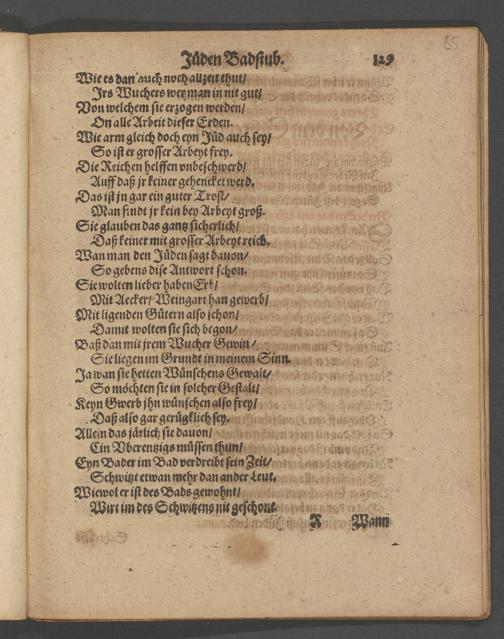 65
Jüden Badstub. 129
Wie es dan auch noch allzeit thut/
Irs Wuchers wer man in nit gut/
Von welchem sie erzogen werden/
On alle Arbeit dieser Erden.
Wie arm gleich doch eyn Jüd auch sey/
So ist er grosser Arbeyt frey.
Die Reichen helffen vnbeschwerd/
Auff daß jr keiner gehencket werd.
Das ist jn gar ein guter Trost/
Man findt jr kein bey Arbeyt groß.
Sie glauben das gantz sicherlich/
Daß keiner mit grosser Arbeyt reich.
Wan man den Jüden sagt dauon/
So gebens dise Antwort schon.
Sie wolten lieber haben Erb/
Mit Aecker/ Weingart han gewerb/
Mit ligenden Gütern also schon/
Damit wolten sie sich begon/
Baß dan mit jrem Wucher Gewin/
Sie liegen im Grundt in meinem Sinn.
Ja wan sie hetten Wünschens Gewalt/
So möchten sie in solcher Gestalt/
Keyn Gwerb jhn wünschen also frey/
Daß also gar gerügklich sey.
Allein das järlich sie dauon/
Ein Vberentzigs müssen thun/
Eyn Bader im Bad verdreibt sein Zeit/
Schwitzt etwan mehr dan ander Leut.
Wiewol er ist des Bads gewohnt/
Wirt im des Schwitzens nit geschont.
R Wann